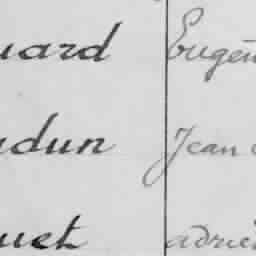 uard Eugèn
udun Jean
uet adrie